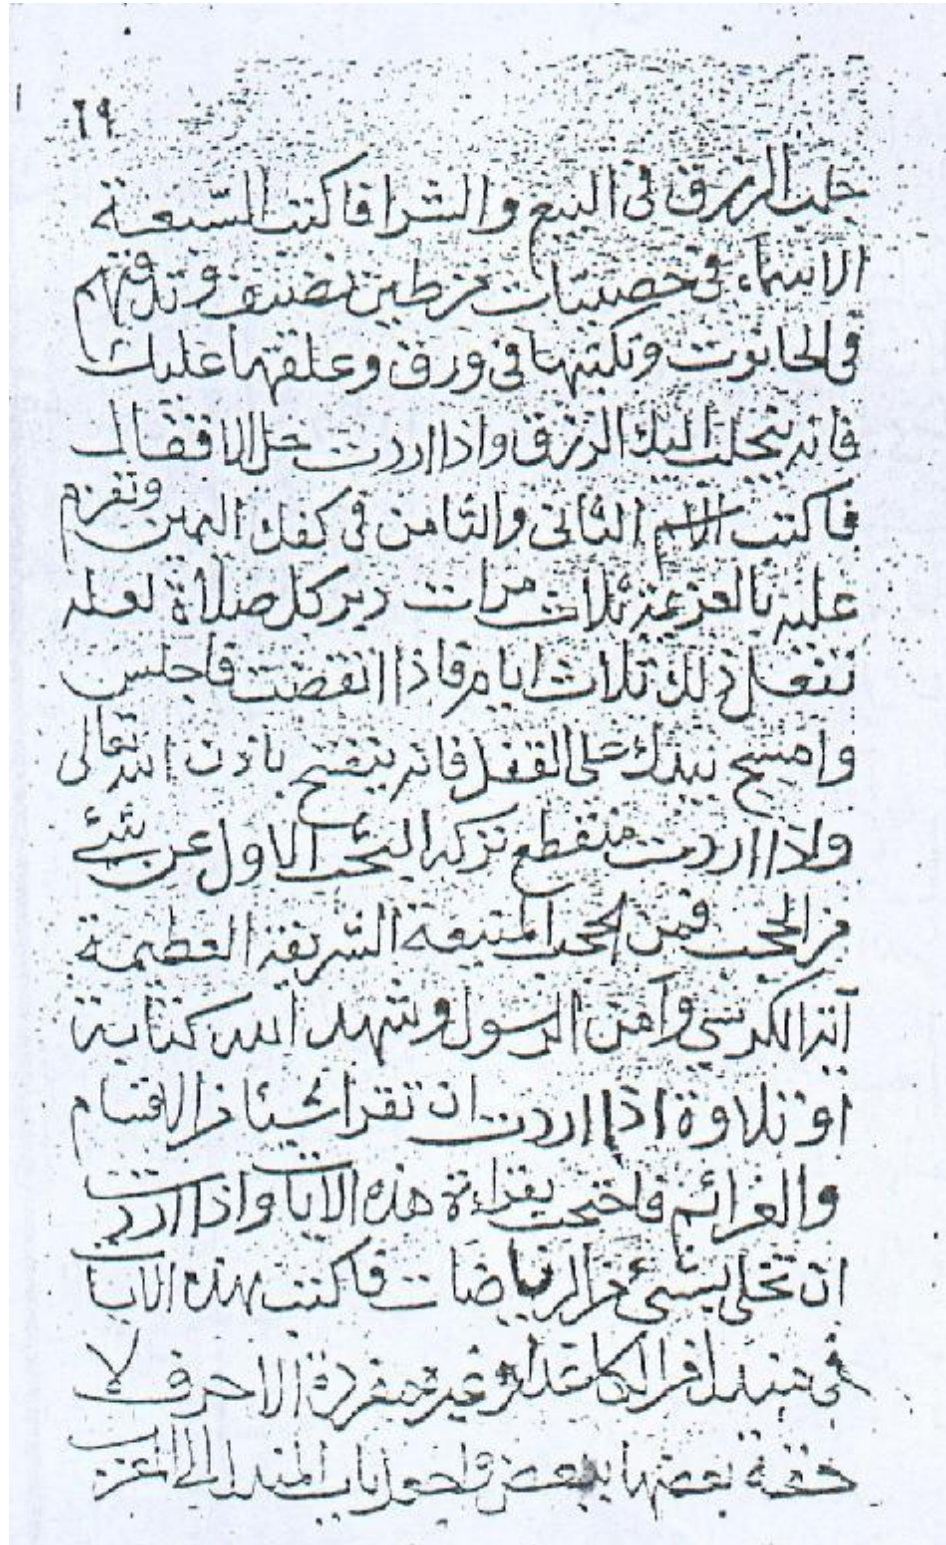 ٢٩
جلب الرزق في البيع والشرا فاكتب السبعة
الاسماء في خصيتات من طين نضيف وتدفنهم
في الحانوت وتكتبها في ورق وعلقها عليك
فانه ينجلب اليك الرزق واذا اردت حل الاقفال
فاكتب الاسم الثاني والثامن في كفك اليمين وتعزم
عليه بالعزيمة ثلاث مرات دبر كل صلاة لعله
تفعل ذلك ثلاث ايام فاذا انقضت فاجلس
وامسح بيدك على القفل فانه ينفتح باذن الله تعالى
واذا اردت
الاول عن شئ
من الحجب فمن الحجب المنيعة الشريفة العظيمة
آية الكرسي وآمن الرسول وشهد الله كتابة
او تلاوة اذا اردت ان تقرا شيئا من الاقسام
والعزائم فاحتجب بقراءة هذه الايات واذا اردت
ان تخلى بشئ من الرياضات فاكتب بهذه الايات
في مندل من الكاغد غير مفردة الاحرف لا
بعضها ببعض واجعل باب المندل الى المغرب